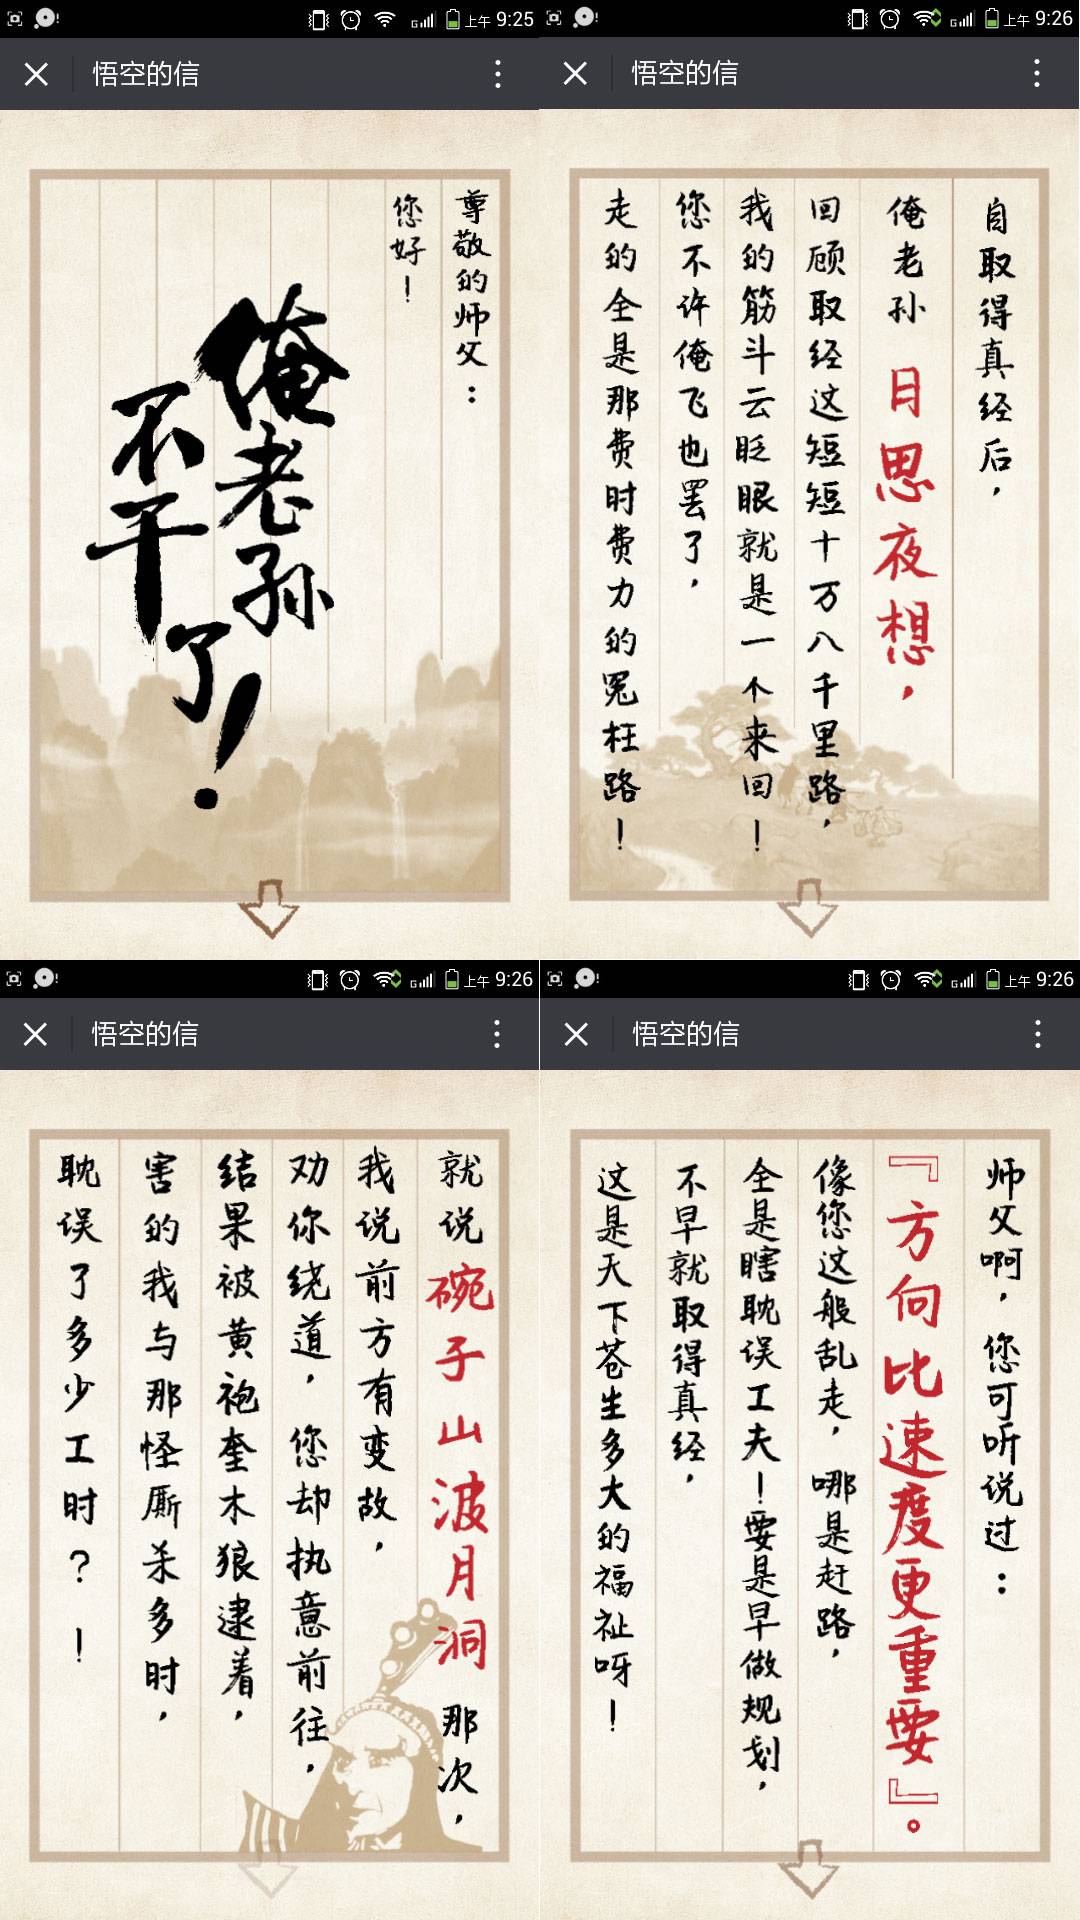 上午 9:25
悟空的信
尊敬的师父：
您好！
俺老孙
不干了！
上午 9:26
悟空的信
自取得真经后，
俺老孙日思夜想，
回顾取经这短短十万八千里路，
我的筋斗云眨眼就是一个来回！
您不许俺飞也罢了，
走的全是那费时费力的冤枉路！
上午 9:26
悟空的信
就说碗子山波月洞那次，
我说前方有变故，
劝你绕道，您却执意前往，
结果被黄袍奎木狼逮着，
害的我与那怪厮杀多时，
耽误了多少工时？！
上午 9:26
悟空的信
师父啊，您可听说过：
『方向比速度更重要』。
像您这般乱走，哪是赶路，
全是瞎耽误工夫！要是早做规划，
不早就取得真经，
这是天下苍生多大的福祉呀！